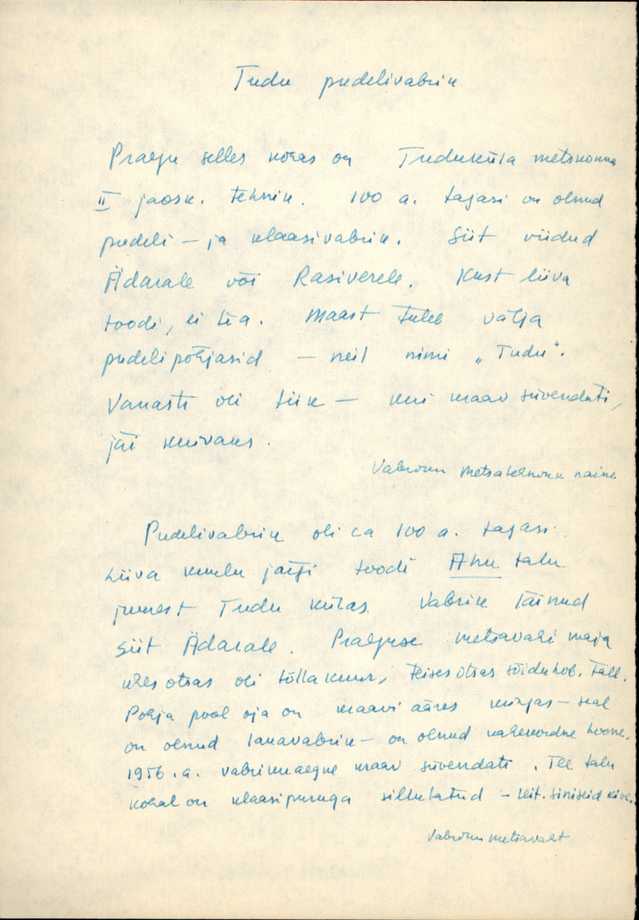 Tudu pudelivabrik
Praegu selles kohas on Tuduküla metskonna
II jaosk. tehnik. 100 a. tagasi on olnud
pudeli – ja klaasivabrik. Siit viidud
Ädarale või Rasiverele. Kust liiva
toodi, ei tea. Maast tuleb välja
pudelipõhjasid – neil nimi „Tudu".
Vanasti oli tiik – kui kraav süvendati,
jäi kuivaks.
Vabriku metsatehniku naine
Pudelivabrik oli ca 100 a. tagasi.
Liiva kuulu järgi toodi Ahu talu
juurest Tudu külas. Vabrik läinud
siit Ädarale. Praeguse metsavahi maja
ühes otsas oli tõllakuur, teises otsas sõiduhob. tall.
Põhja pool oja on kraavi ääres küngas – seal
on olnud lauavabrik – on olnud kahekordne hoone.
1956. a. vabrikuaegne kraav süvendati. Tee talu
kohal on klaasipuruga sillutatud – leit. siniseid kive.
Vabriku metsavaht